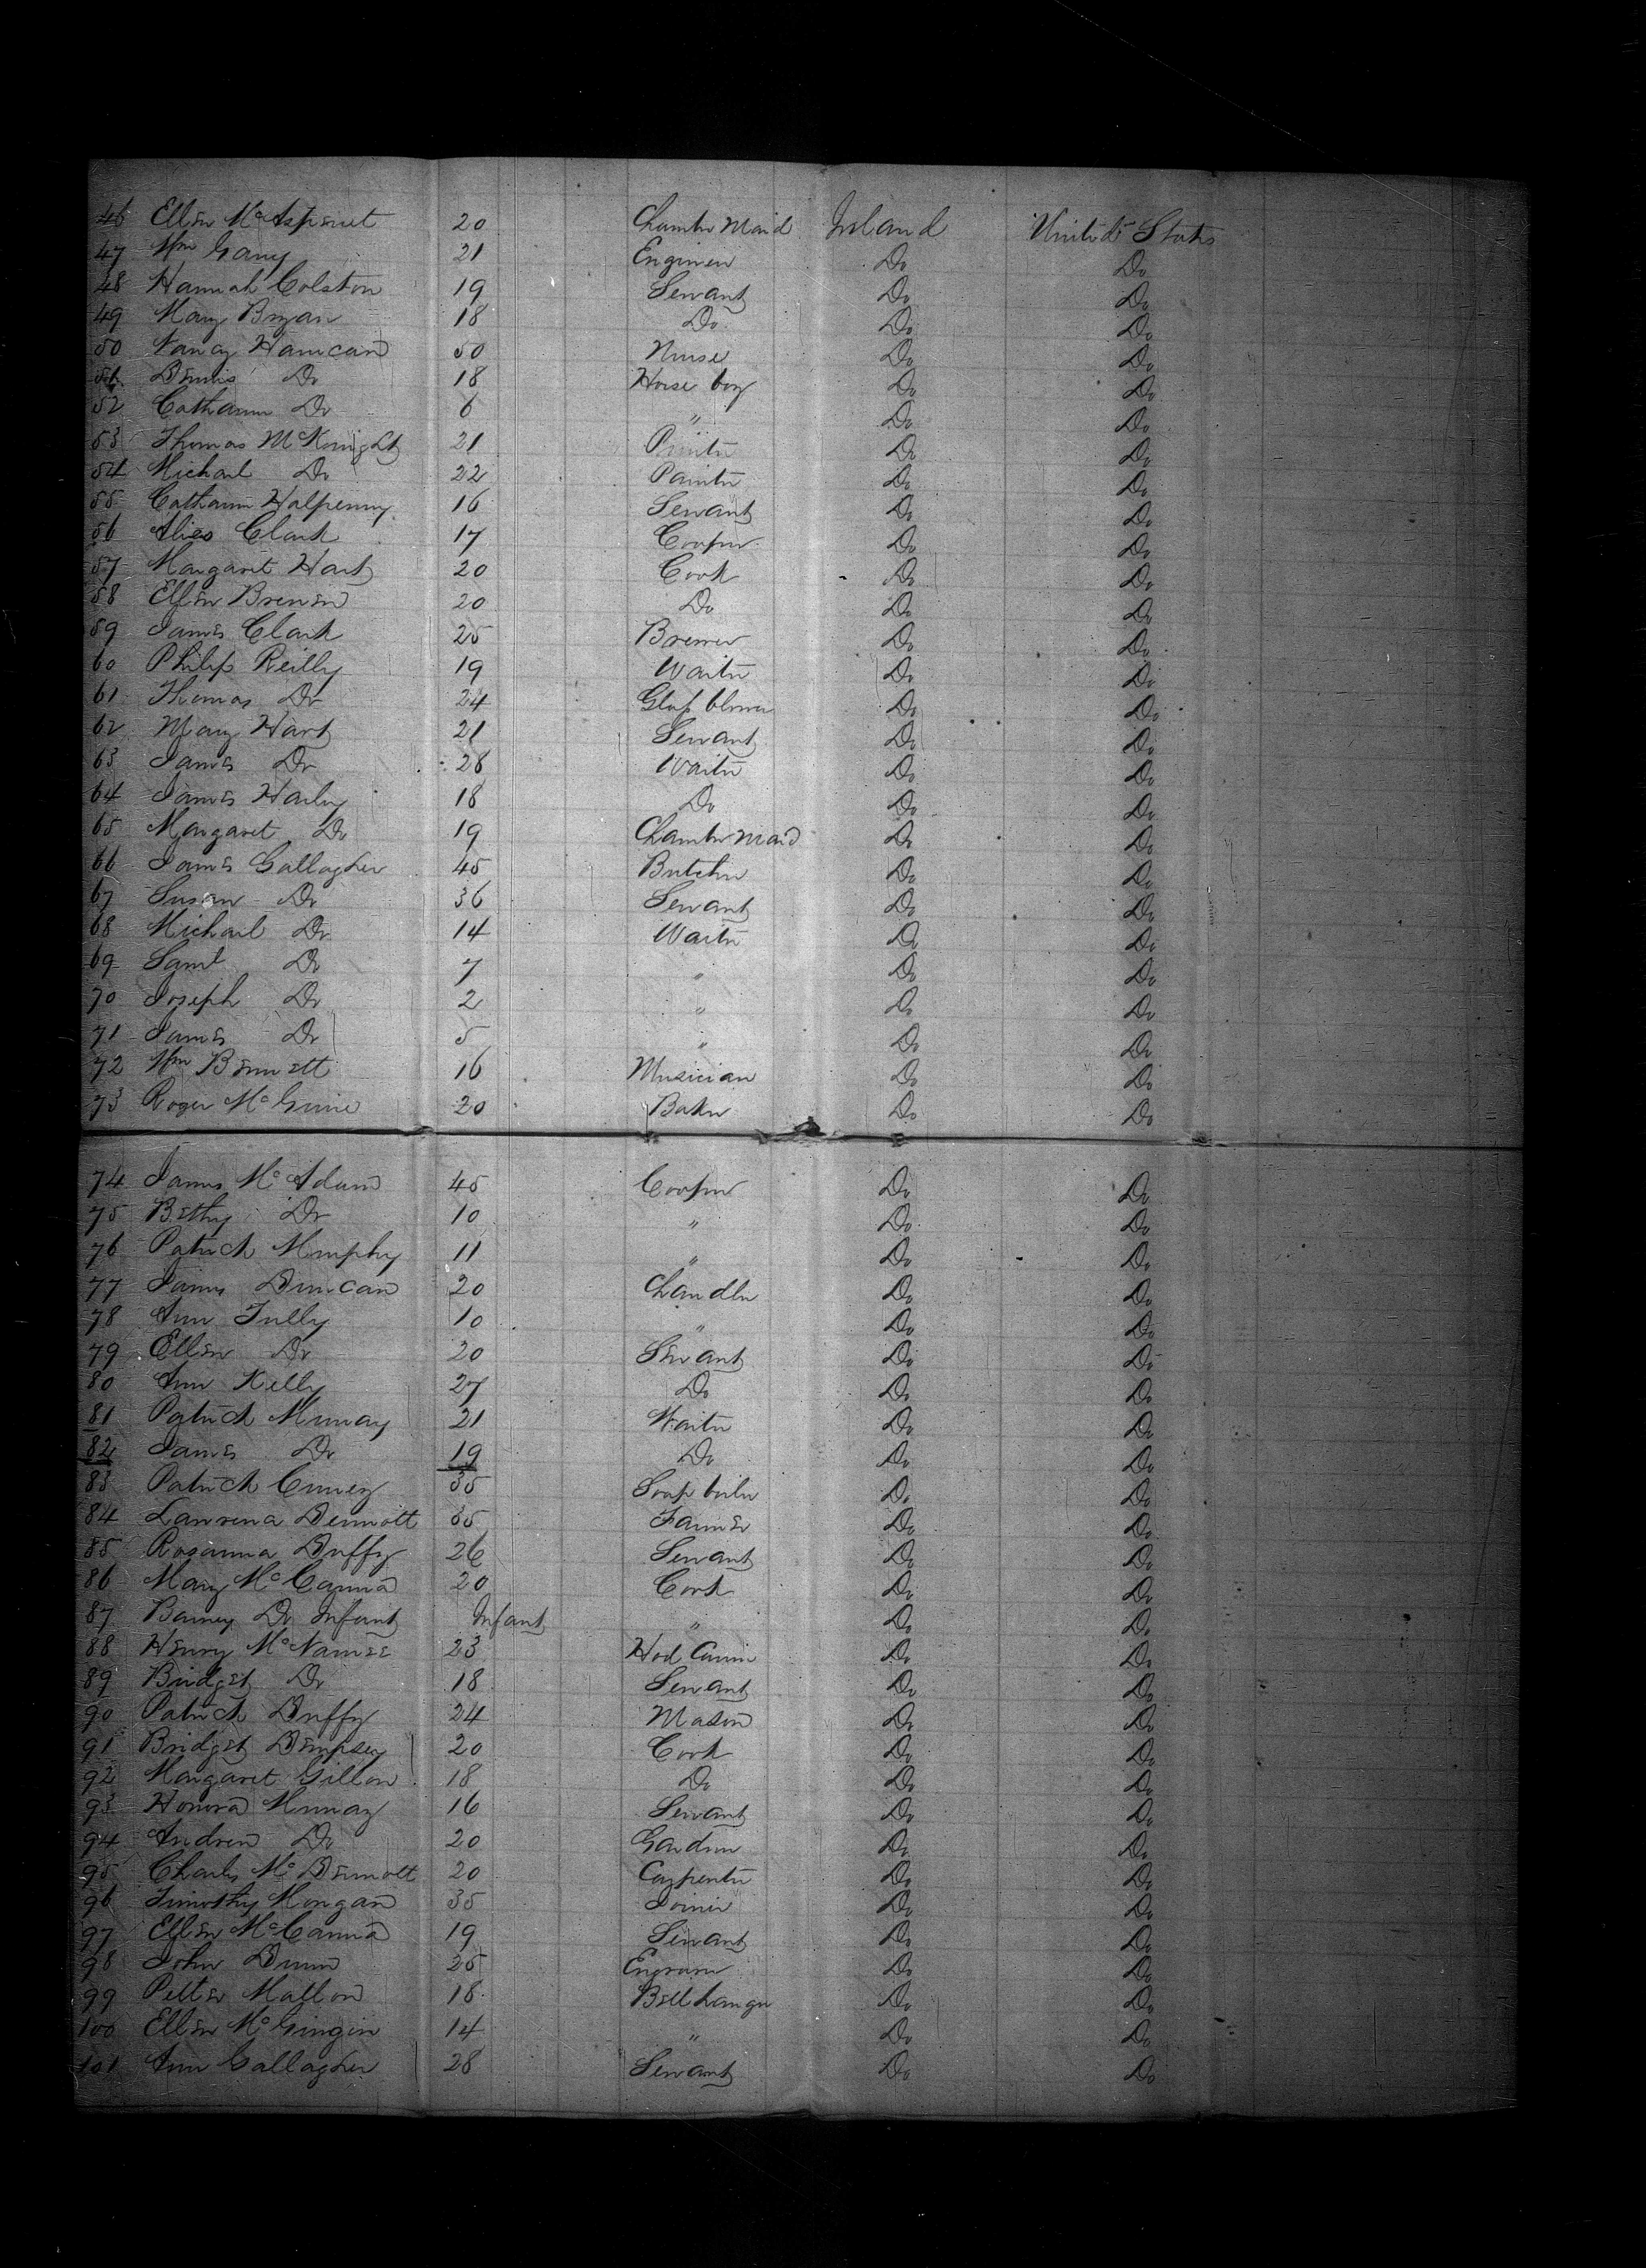 46 Ellen 20 Chamber Maid Ireland United States
47 Wm Gary 21 Engineer Do Do
48 Hannah Colston 19 Servant Do Do
49 Mary Bryan 18 Do Do Do
50 Nancy 50 Nurse Do Do
51 Dennis Do 18 Horse boy Do Do
52 Catharine Do 6 " Do Do
53 Thomas McKnight 21 Do Do
54 Michael Do 22 Painter Do Do
55 Catharine Halpenny 16 Servant Do Do
56 Clark 17 Cooper Do Do
57 Margaret Hart 20 Cook Do Do
58 Ellen Brenen 20 Do Do Do
59 James Clark 25 Brewer Do Do
60 Philip Reilly 19 Waiter Do Do
61 Thomas Do 24 Glass blower Do Do
62 Mary Hart 21 Servant Do Do
63 James Do 28 Waiter Do Do
64 James Harley 18 Do Do Do
65 Margaret Do 19 Chamber Maid Do Do
66 James Gallagher 45 Butcher Do Do
67 Susan Do 36 Servant Do Do
68 Michael Do 14 Waiter Do Do
69 Saml Do 7 " Do Do
70 Joseph Do 2 " Do Do
71 James Do 5 " Do Do
72 Wm Bennett 16 Musician Do Do
73 Roger McGuire 20 Baker Do Do
74 James McAdam 45 Cooper Do Do
75 Bethy Do 10 " Do Do
76 Patrick Murphy 11 " Do Do
77 James Duncan 20 Chandler Do Do
78 Ann Tully 10 " Do Do
79 Ellen Do 20 Servant Do Do
80 Ann Kelly 27 Do Do Do
81 Patrick Murray 21 Waiter Do Do
82 James Do 19 Do Do Do
83 Patrick 35 Soap boiler Do Do
84 Dermott 35 Farmer Do Do
85 Rosanna Duffy 26 Servant Do Do
86 Mary McCanna 20 Cook Do Do
87 Barney Do Infant Infant " Do Do
88 Henry McNamee 23 Hod Carrier Do Do
89 Bridget Do 18 Servant Do Do
90 Patrick Duffy 24 Mason Do Do
91 Bridget Dempsey 20 Cook Do Do
92 Margaret Gillon 18 Do Do Do
93 Honora Murray 16 Servant Do Do
94 Andrew Do 20 Do Do
95 Charles McDermott 20 Carpenter Do Do
96 Timothy Morgan 35 Joiner Do Do
97 Ellen McCanna 19 Servant Do Do
98 John Dunn 25 Engraver Do Do
99 Petter Mallon 18 Bell hanger Do Do
100 Ellen 14 " Do Do
101 Ann Gallagher 28 Servant Do Do